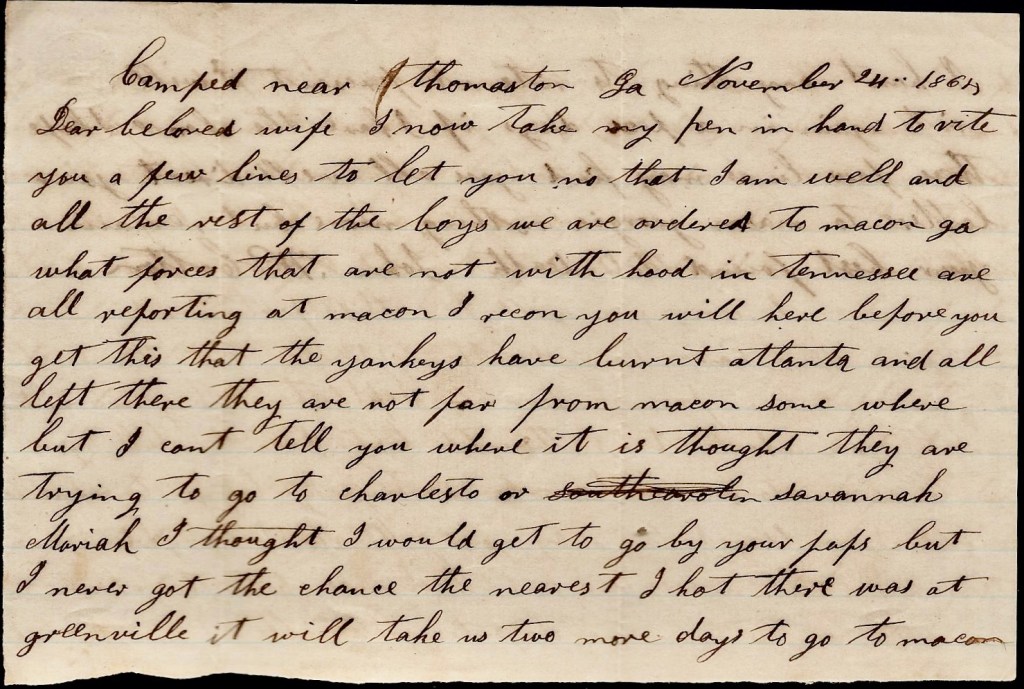 Camped near thomaston Ga November 24.. 1864
Dear beloved wife I now take my pen in hand to rite
you a few lines to let you no that I am well and
all the rest of the boys we are ordered to macon ga
what forces that are not with hood in tennessee are
all reporting at macon I recon you will here before you
get this that the yankeys have burnt atlanta and all
left there they are not far from macon some where
but I cant tell you where it is thought they are
trying to go to charlesto or southcarolin savannah
Mariah I thought I would get to go by your paps but
I never got the chance the nearest I got there was at
greenville it will take us two more days to go to macon